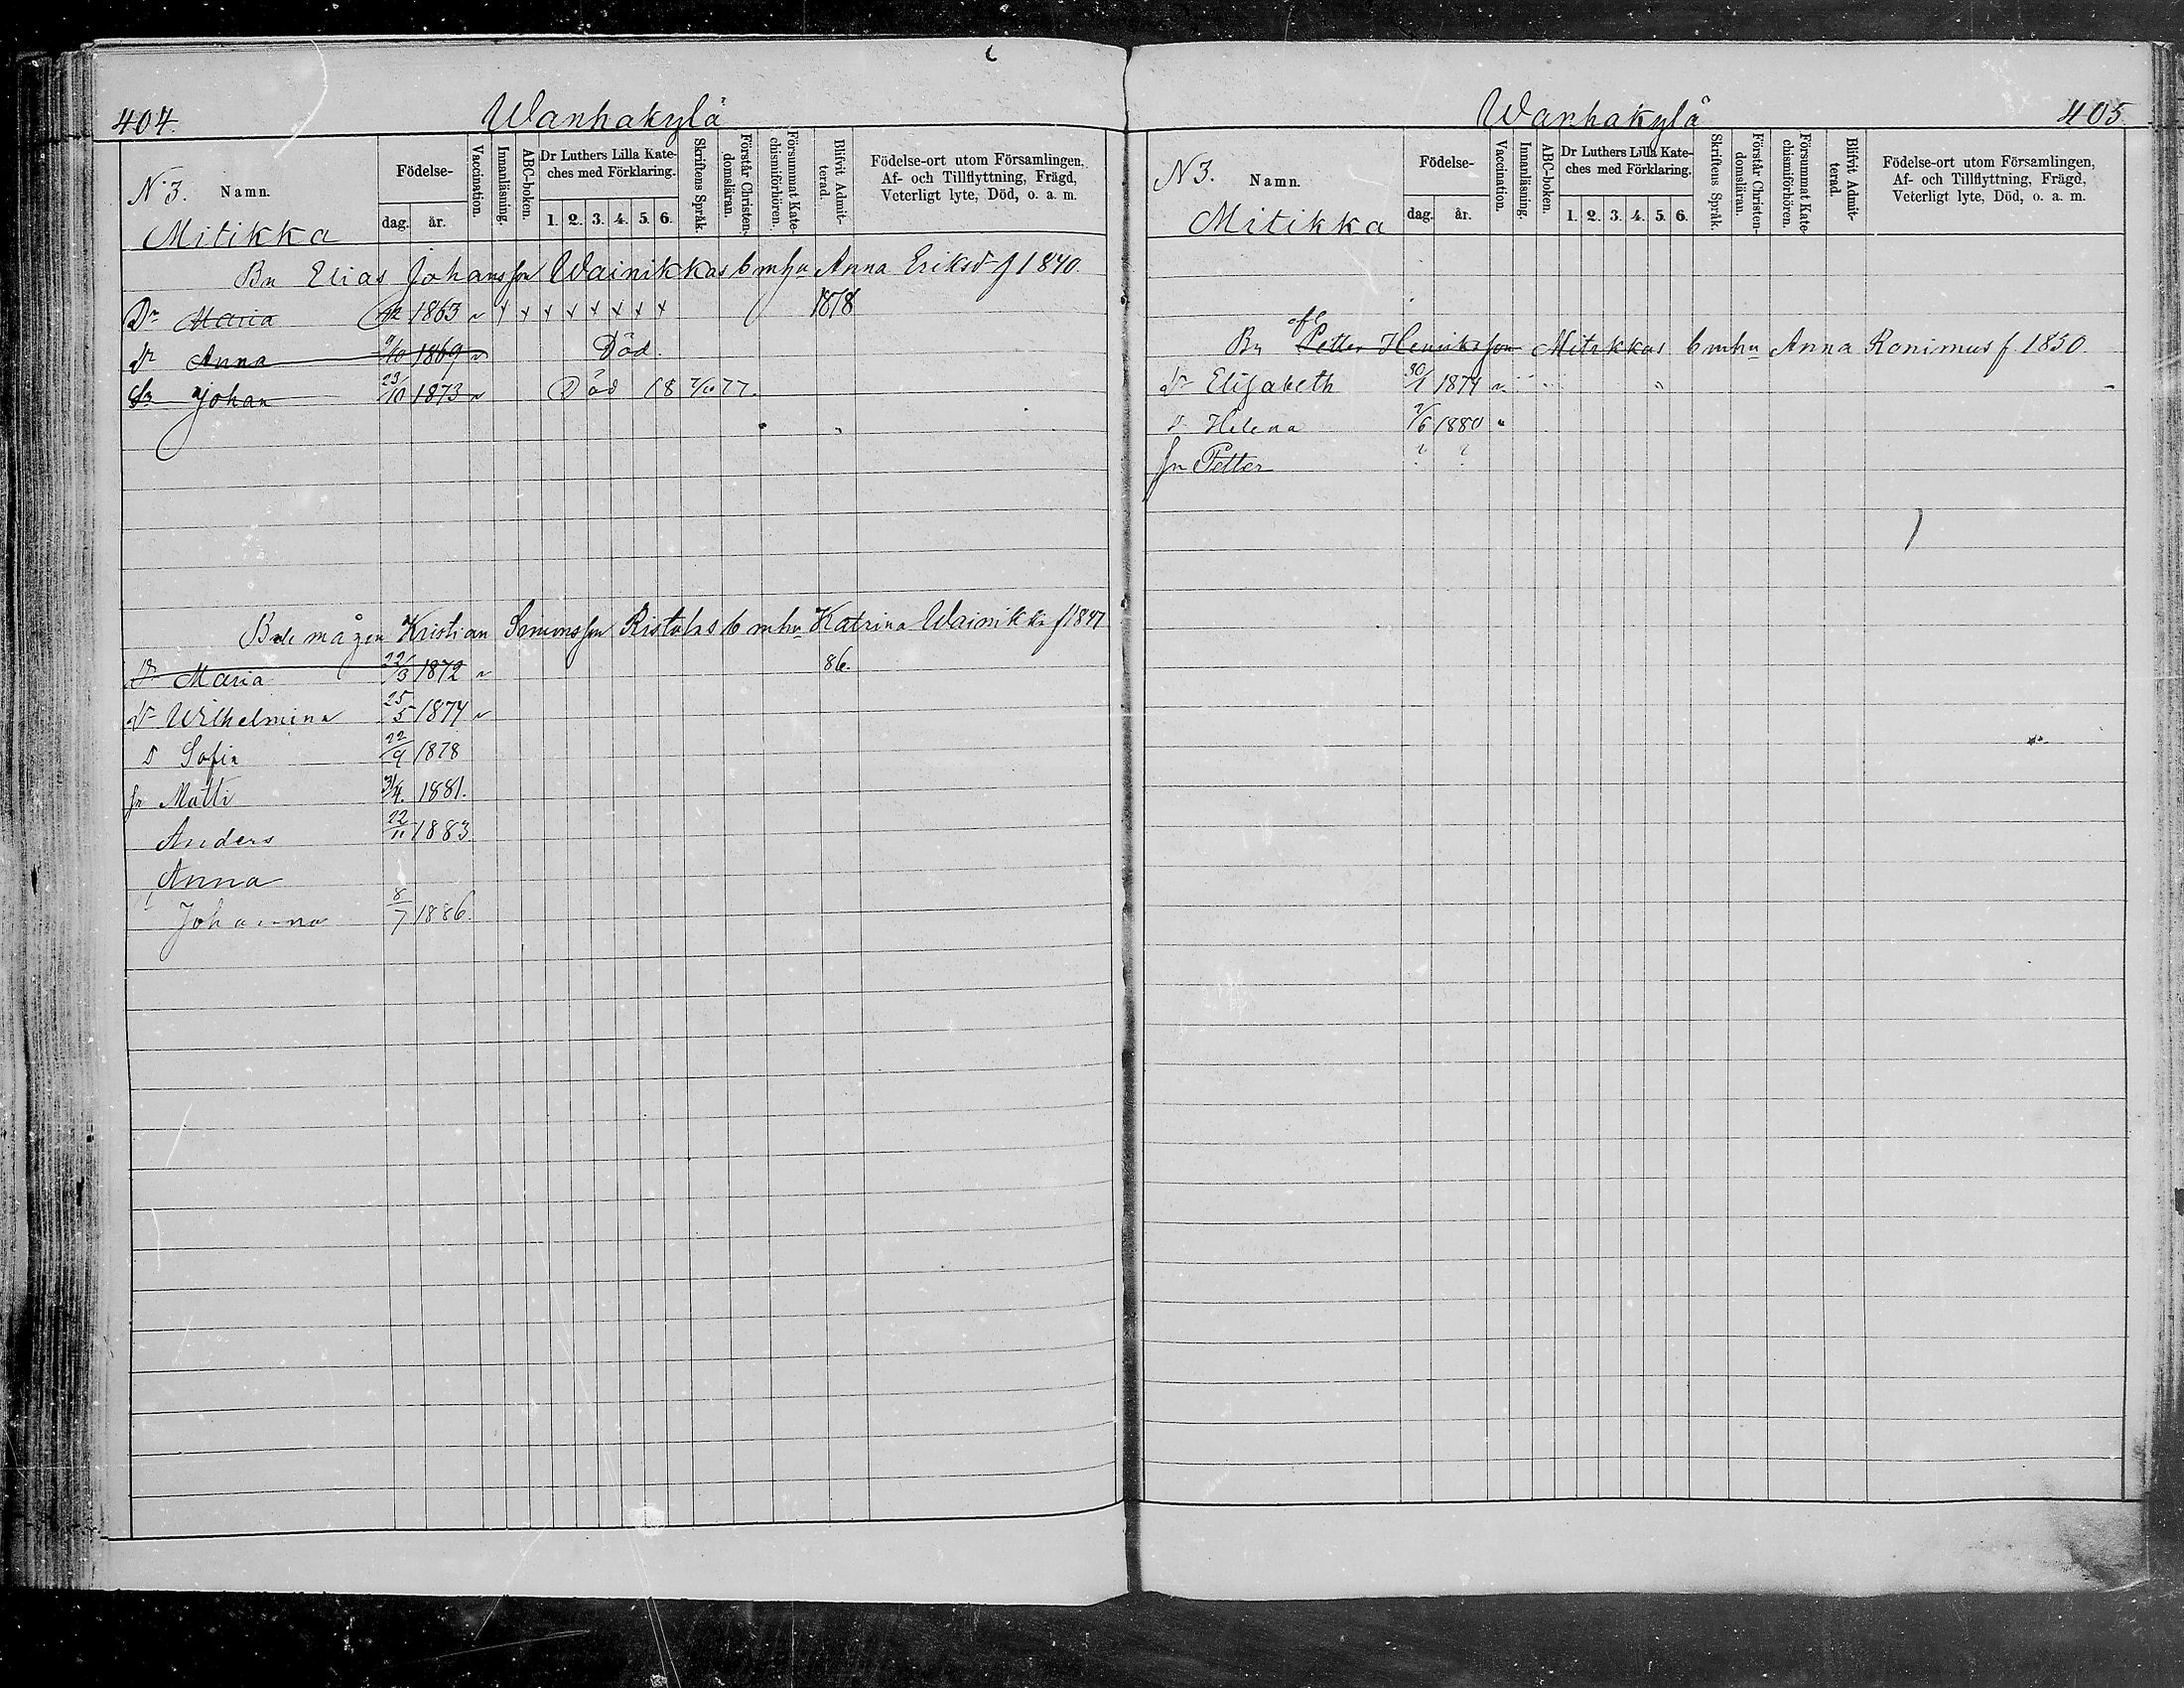 404.
Wanhakylä
N:3.
Namn.
Mitikka
Födelse-
dag. år.
Vaccination.
Innanläsning.
ABC-boken.
Dr Luthers Lilla Kate-
ches med Förklaring.
1. 2. 3. 4. 5. 6.
Skriftens Språk.
Förstår Christen-
domsläran.
Försummat Kate-
chismiförhören.
Blifvit Admit-
terad.
Födelse-ort utom Församlingen,
Af- och Tillflyttning, Frägd,
Veterligt lyte, Död, o. a. m.
Bn Elias Johansson Wainikkas b m hu Anna Eriksd f 1840.
Dr Maria 1863 v x x x x x x x x 1878
dr Anna 9/10 1869 v Död.
Sn Johan 23/10 1873 v Död 18 7/10 77.
Bde mågen Kristian Simonsson Ristolas b m hu Katrina Wainikka f 1847
Dr Maria 22/3 1872 v 86.
dr Wilhelmina 25/5 1874 v
D Sofia 22/9 1878
sn Matti 3/4. 1881.
Anders 22/11 1883.
Anna
Johanna 8/7 1886.
Wanhakylä
405.
N3.
Namn.
Mitikka
Födelse-
dag. år.
Vaccination.
Innanläsning.
ABC-boken.
Dr Luthers Lilla Kate-
ches med Förklaring.
1. 2. 3. 4. 5. 6.
Skriftens Språk.
Förstår Christen-
domsläran.
Försummat Kate-
chismiförhören.
Blifvit Admit-
terad.
Födelse-ort utom Församlingen,
Af- och Tillflyttning, Frägd,
Veterligt lyte, Död, o. a. m.
afl
Bn Petter Henriksson Mitikkas b m hu Anna Ronimus f 1850.
dr Elisabeth 30/1 1874 v
D Helena 7/6 1880 "
sn Petter ? ?